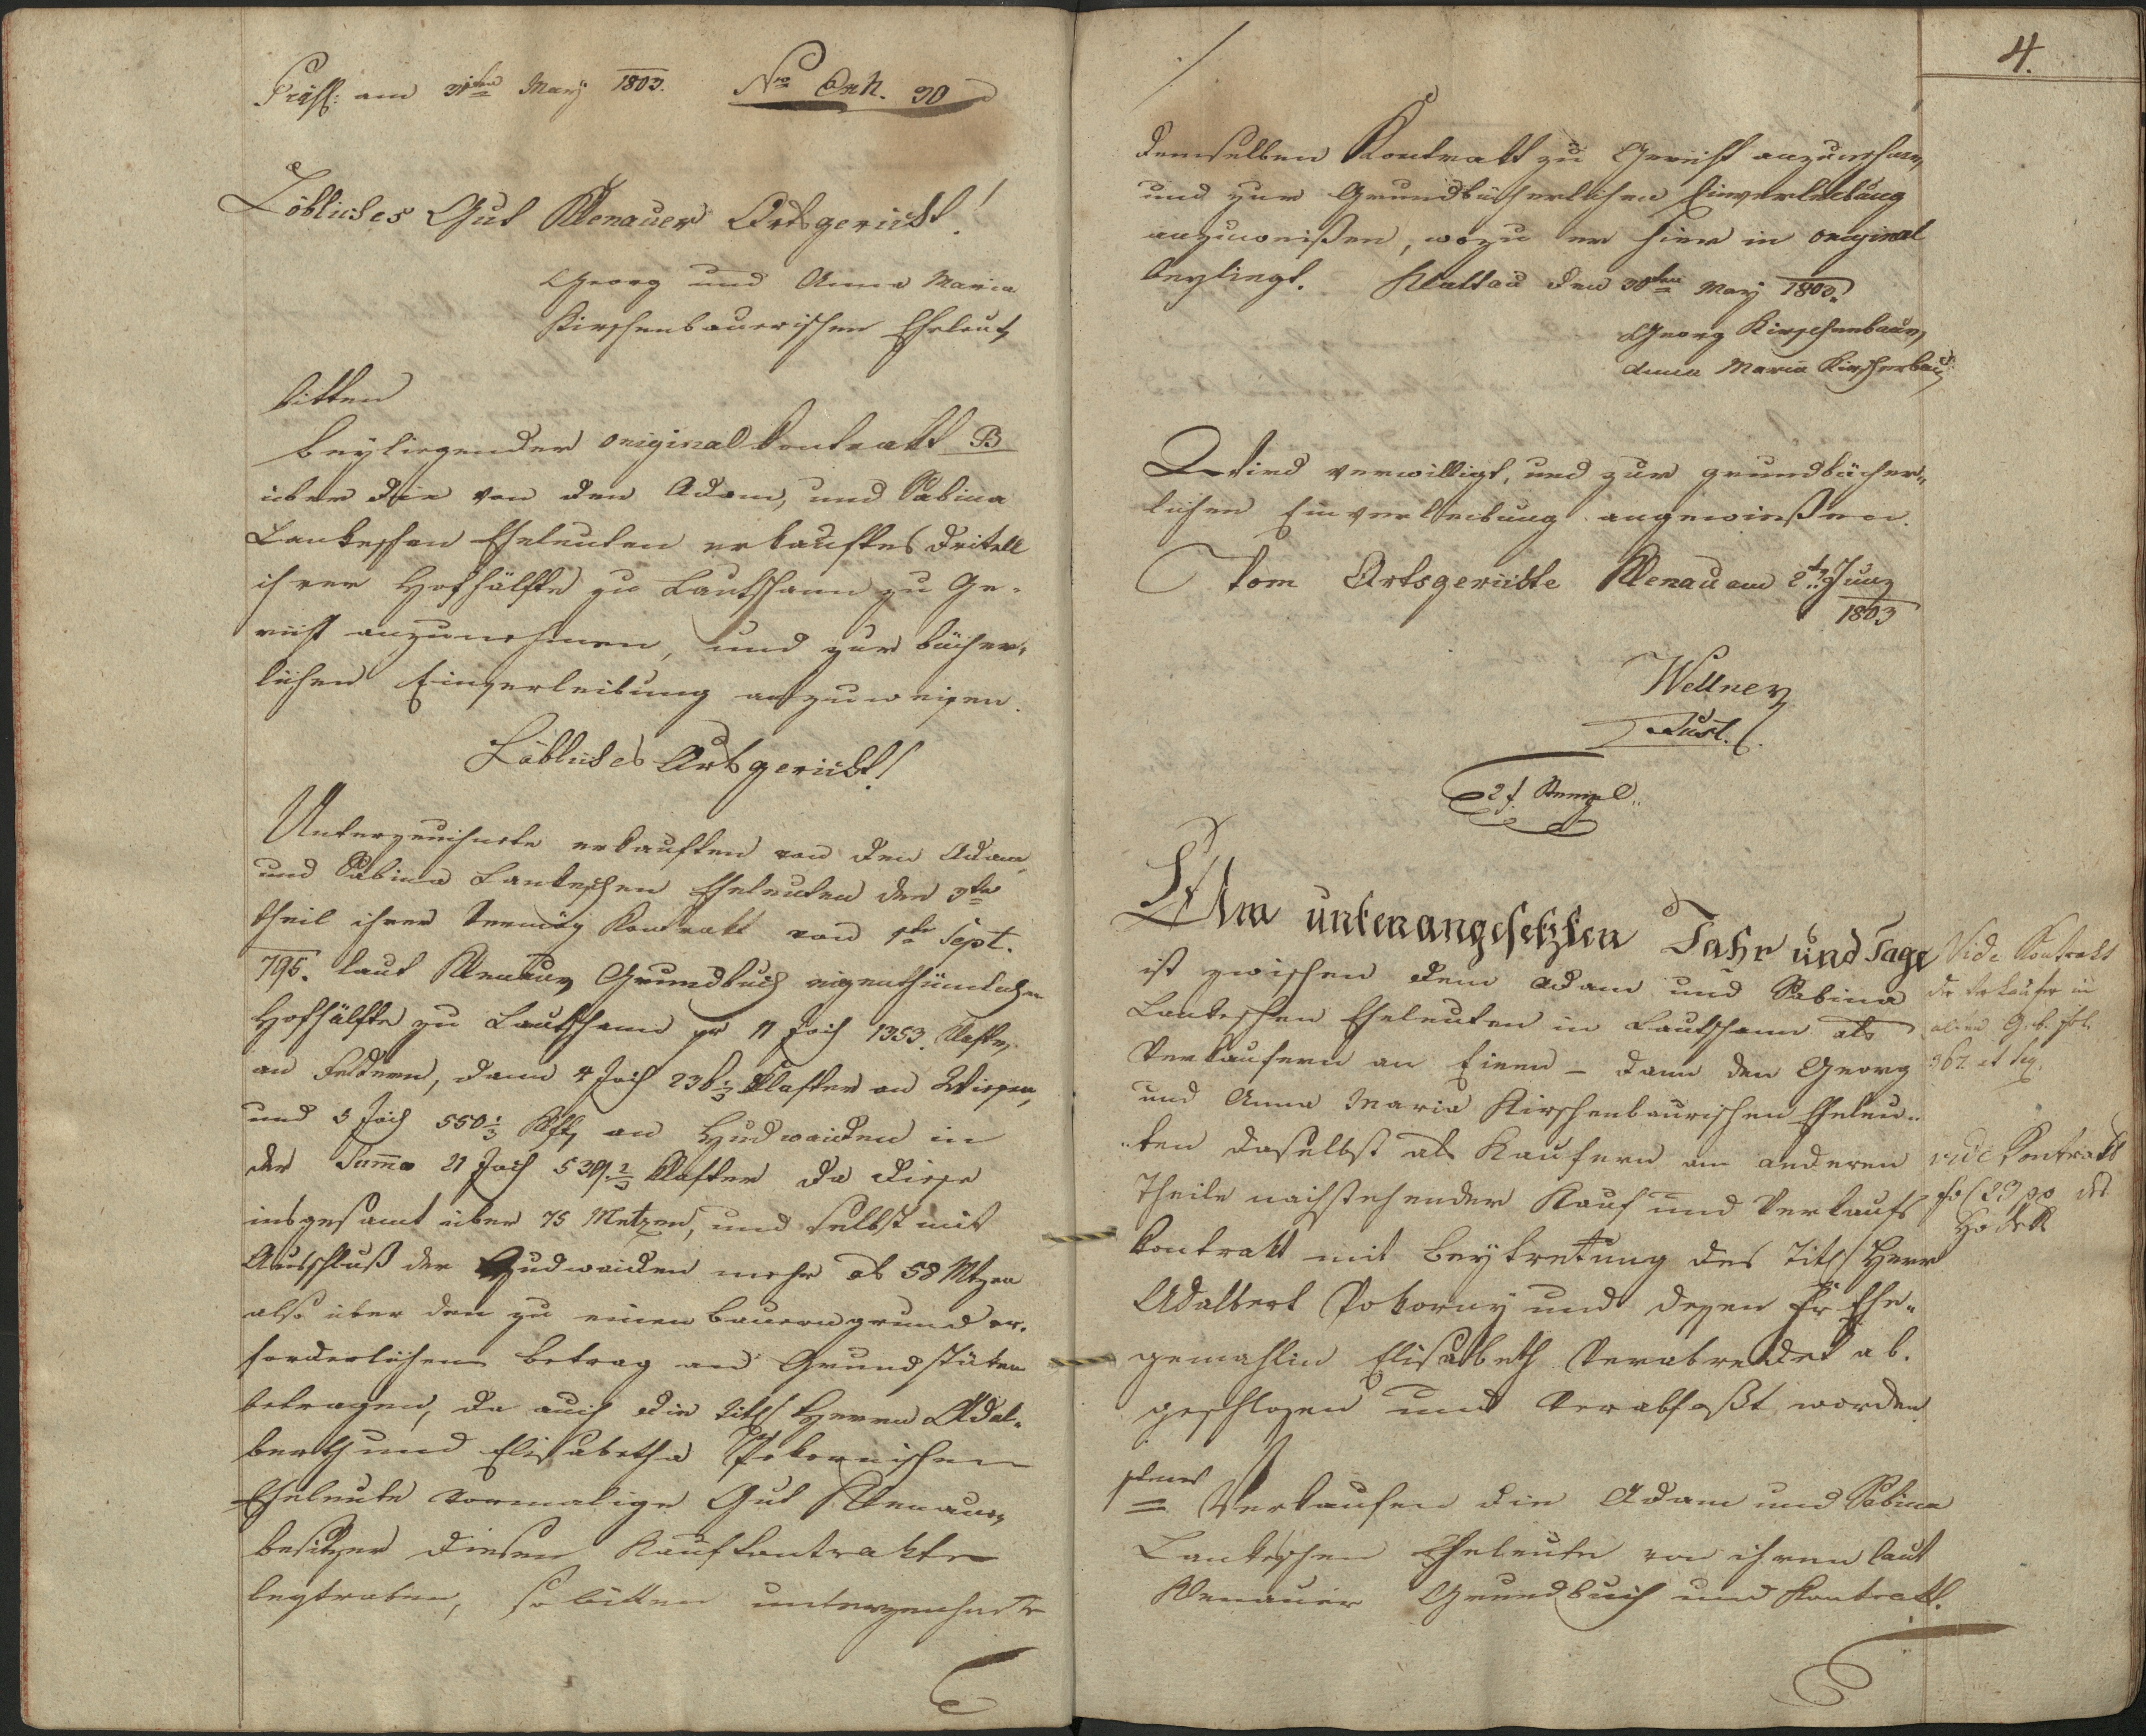 Präs: am 31ten May 1803. Nro Exh. 30
Löbliches Gut Klenauer Ortsgericht!
Georg und Anna Maria
Kirschenbauerischen Eheleute
bitten
beyliegenden original Kontrakt B
über die von den Adam, und Sabina
Lankeschen Eheleuten erkauftes Dritell
ihrer Hofhälfte zu Lautschann zu Ge-
richt anzunehmen, und zur bücher-
lichen Einverleibung anzuweisen.
Löbliches Ortsgericht!
Unterzeichnete erkauften von den Adam,
und Sabina Lankeschen Eheleuten den 3ten
theil ihrer vermög Kontrakt von 1te Sept.
795. laut Klenauer Grundbuch eigenthümlichen
Hofhälfte zu Lautschann pr 11 Joch 1353. Klafter
an Feldern, dann 4 Joch 236 1/3 Klafter an Wiesen,
und 5 Joch 550 1/3 Klft. an Hudwaiden in
der Summa 21 Joch 539 2/3 Klafter da diese
insgesamt über 75 Metzen, und selbst mit
Ausschluß der Hudwaiden mehr als 58 Mtzen
also über den zu einen Bauerngrund er-
forderlichen betrag an Grundstüken
betragen, da auch die Titl Herrn Adal-
bert und Elisabetha Pokornischen
Eheleute vormalige Gut Klenauer
besitzer diesem Kaufkontrakte
beytraten, so bitten unterzeichnete
4.
demselben Kontrakt zu Gericht anzunehmen,
und zur Grundbücherlichen Einverleibung
anzuweißen, wozu er hier in original
beyliegt. Klattau den 30ten May 1803.
Georg Kirschenbauer
Anna Maria Kirschenbau
Wird verwilligt, und zur grundbücher-
lichen Einverleibung angewießen.
Vom Ortsgerichte Klenau am 2t Juny
1803
Wellner
Just.
2 f. Stempel
Am untenangesetzten Jahr und Tage
ist zwischen dem Adam und Sabina
Lankeschen Eheleuten in Lautschann als
Verkaufern an Einem – dann den Georg
und Anna Maria Kirschenbaurischen Eheleu-
ten daselbst als Kaufern am anderen
Theile nachstehender Kauf und Verkaufs
Kontrakt mit beytretung des Titl Herr
Adalbert Pokorny und dessen Fr Ehe-
gemahlin Elisabeth Verabredet ab-
geschlossen und Verabfaßt worden
Verkaufen die Adam und Sabina
Lankeschen Eheleute von ihren laut
Klenauer Grundbuch und Kontrakt.
Vide Kontrakt
der Verkäufer in
G. b. fol.
367. et seq.
vide Kontrakt
fol 29 pp